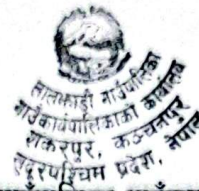 लालझाडी गाउँपालिका
गाउँकार्यपालिकाको कार्यालय
शंकरपुर, कञ्चनपुर
सुदूरपश्चिम प्रदेश, नेपाल